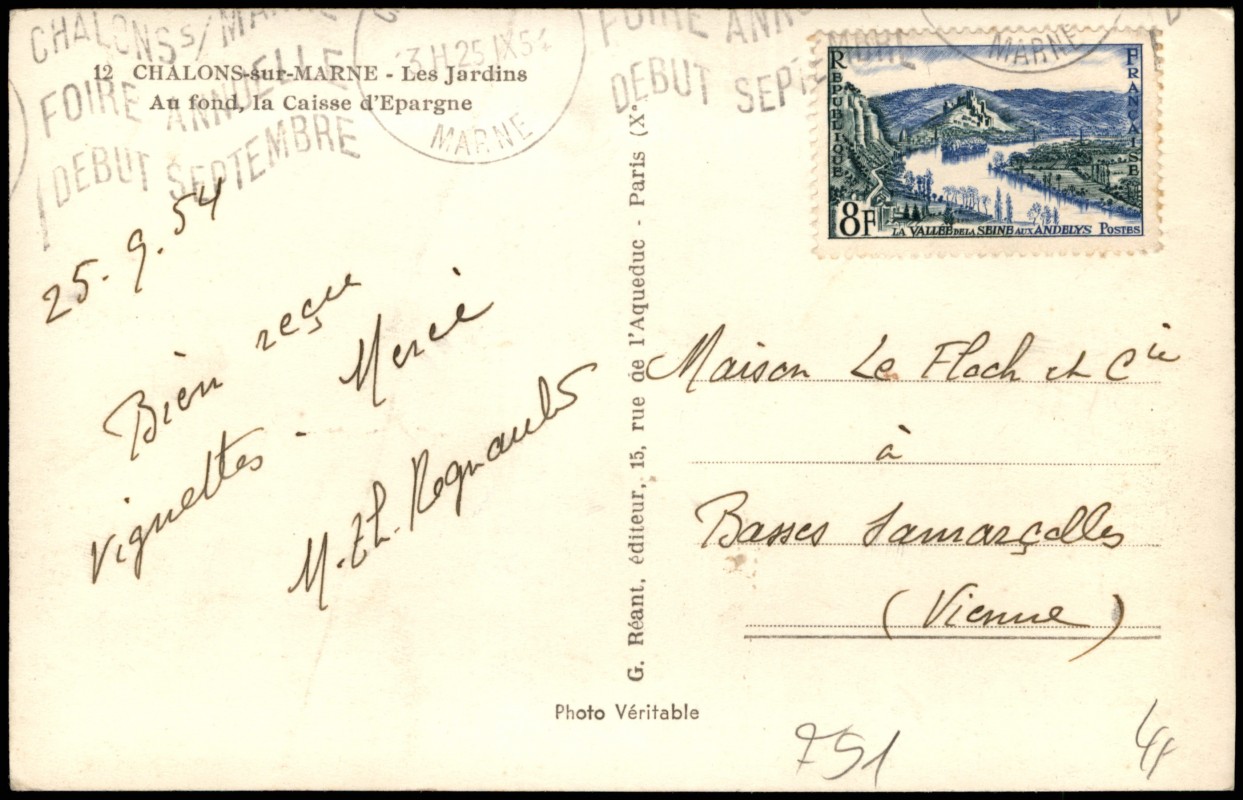 CHALONS S/ MARNE
FOIRE ANNUELLE
DEBUT SEPTEMBRE
13 H 25 IX 54
MARNE
FOIRE ANNU
DEBUT SEPTEMBRE
MARNE
12 CHALONS-sur-MARNE - Les Jardins
Au fond, la Caisse d'Epargne
25.9.54
Bien reçu
vignettes - Merci
M.Th. Regnault
G. Réant, éditeur, 15, rue de l'Aqueduc - Paris (Xe
Photo Véritable
REPUBLIQUE
FRANÇAISE
8F
LA VALLÉE DE LA SEINE AUX ANDELYS POSTES
Maison Le Floch et Cie
à
Basses Samarçolles
(Vienne)
751